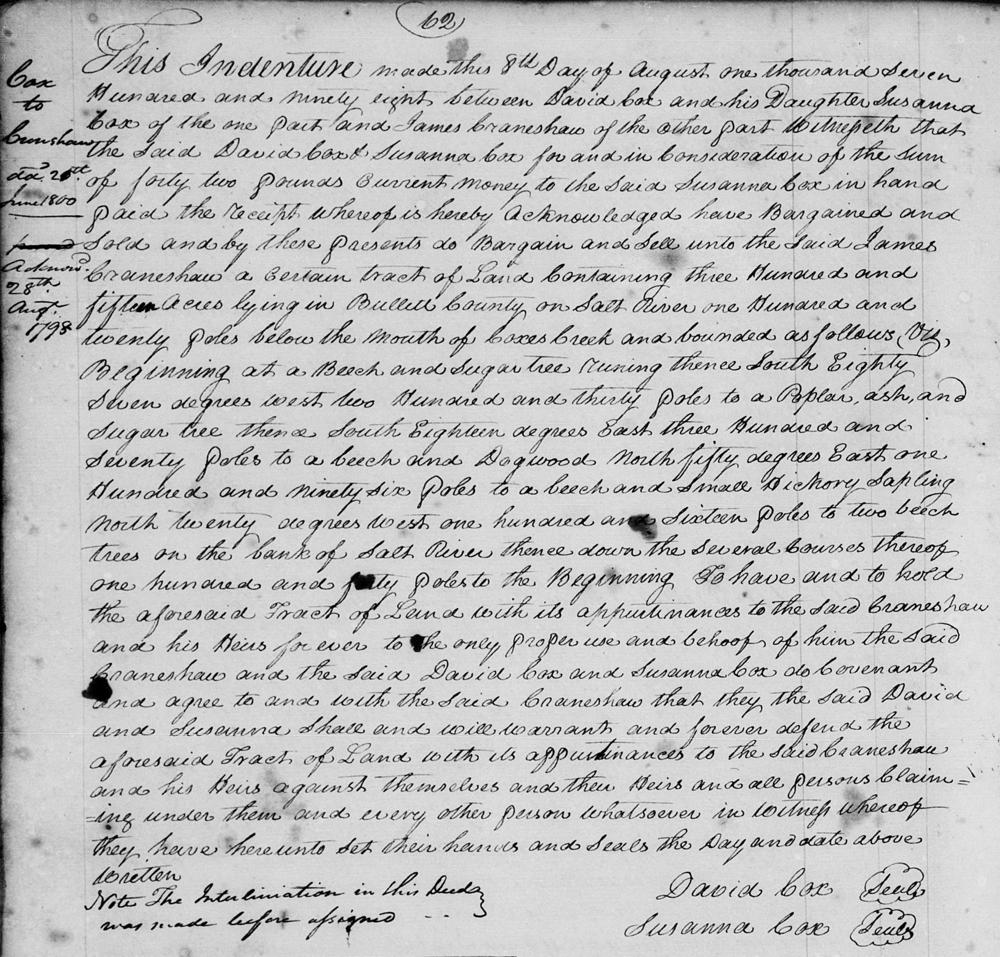 62
Cox
to
Crenshaw
dd. 20th
June 1800
Acknowd.
28th
Augt.
1798
This Indenture made this 8th Day of August one thousand Seven
Hundred and ninety eight between David Cox and his Daughter Susanna
Cox of the one Part and James Craneshaw of the other part Witnesseth that
the Said David Cox & Susanna Cox for and in Consideration of the Sum
of forty two pounds Current money to the Said Susanna Cox in hand
paid the receipt whereof is hereby Acknowledged have Bargained and
Sold and by these presents do Bargain and Sell unto the Said James
Craneshaw a Certain tract of Land Containing three Hundred and
fifteen Acres lying in Bullitt County on Salt River one Hundred and
twenty poles below the mouth of Coxes Creek and bounded as follows, Viz,
Beginning at a Beech and Sugar tree runing thence South Eighty
Seven degrees west two Hundred and thirty poles to a Poplar, ash, and
Sugar tree thence South Eighteen degrees East three Hundred and
Seventy poles to a beech and Dogwood North fifty degrees East one
Hundred and ninety six poles to a beech and Small Hickory Sapling
North twenty degrees West one hundred and Sixteen poles to two beech
trees on the bank of Salt River thence down the Several Courses thereof
one hundred and forty poles to the Beginning To have and to hold
the aforesaid Tract of Land with its appurtinances to the Said Craneshaw
and his Heirs forever to the only proper use and behoof of him the Said
Craneshaw and the Said David Cox and Susanna Cox do Covenant
and agree to and with the Said Craneshaw that they the Said David
and Susanna Shall and will warrant and forever defend the
aforesaid Tract of Land with its appurtinances to the Said Craneshaw
and his Heirs against themselves and their Heirs and all persons Claim=
=ing under them and every other person whatsoever in Witness whereof
they have hereunto Set their hands and Seals the Day and date above
Written
Note The Interliniation in this Deed
was made before assigned
David Cox Seal
Susanna Cox Seal